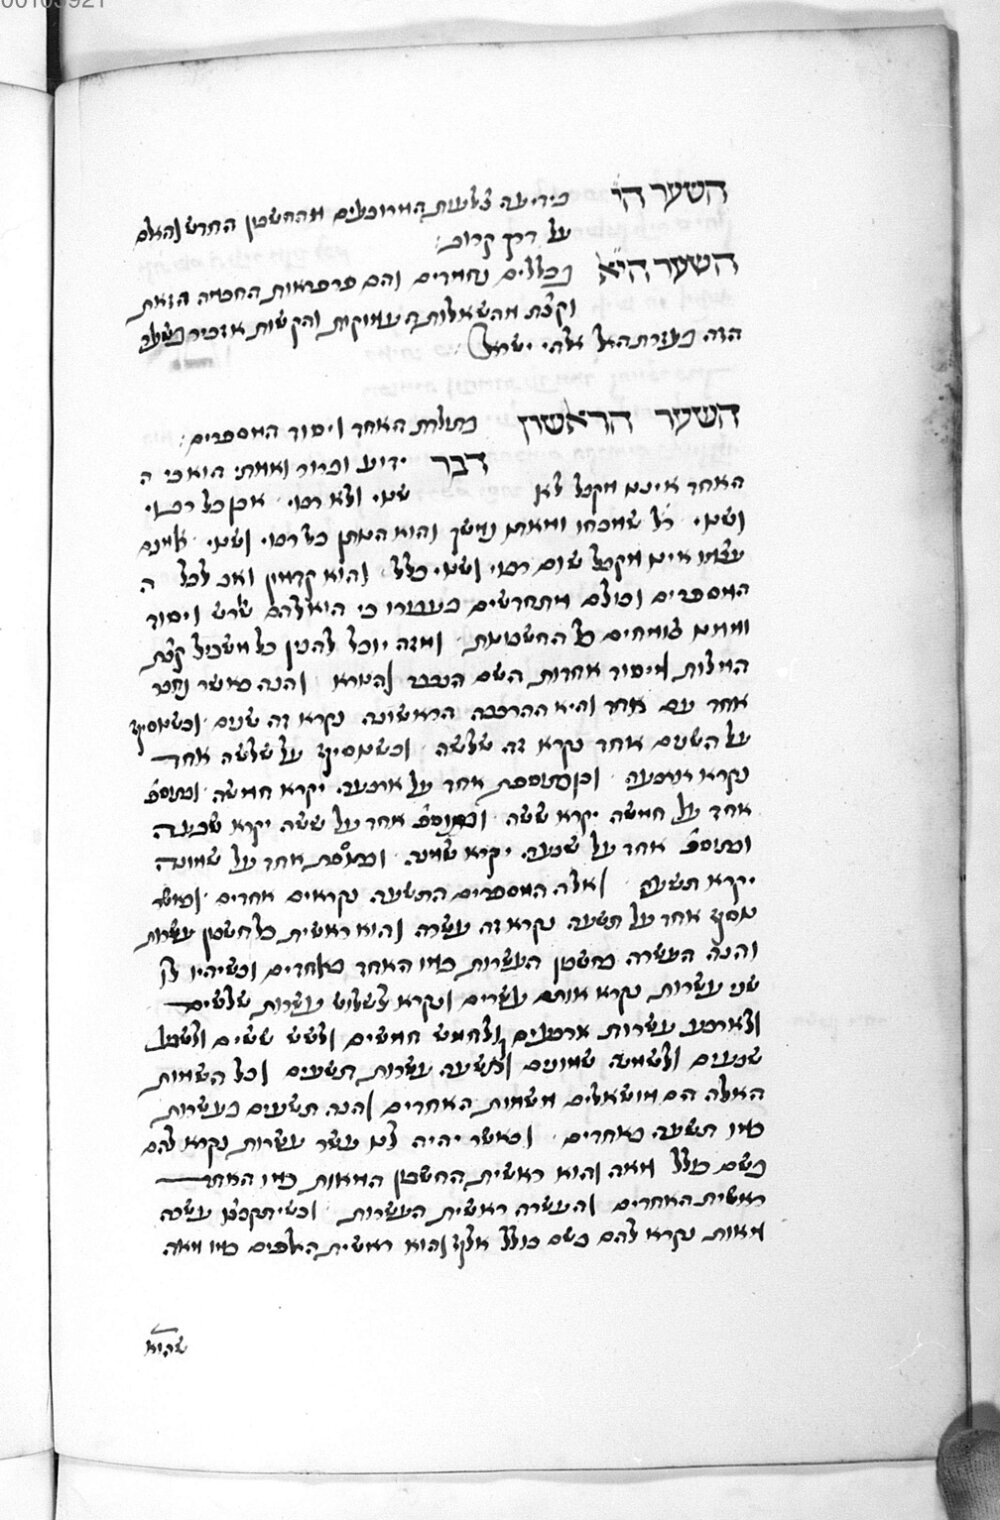 השער הי בידיעה צלעות המרובעים מהחשבון החרש והאלם
על דרך קרוב:
השער הי״א בכללים נחמדים והם פרפראות החכמה הזאת
וקצת מהשאלות העמוקות והקשות אזכיר בשער
הזה בעזרת האל אלהי ישראל:
השער הראשון בתולדת האחד ויסוד המספרים:
דבר ידוע וברור ואמתי הוא כי ה
האחד איננו מקבל לא שנוי ולא רבוי אכן כל רבוי
ושנוי מכחו ומאתו נמשך והוא הנותן כל רבוי ושנוי אמנם
עצמו אינו מקבל שום רבוי ושנוי כלל והוא קדמון ואב לכל ה
המספרים וכולם מתחדשים בעבורו כי הוא להם שרש ויסוד
וממנו צומחים כל החשבונות ומזה יוכל להבין כל משכיל קצת
המלות ויסוד אחדות השם הנכבד והנורא והנה כאשר נחבר
אחד עם אחד והיא ההרכבה הראשונה נקרא זה שנים וכשנוסיף
על השנים אחד נקרא זה שלשה וכשנוסיף על שלשה אחד
נקרא ארבעה וכן בתוספת אחד על ארבעה יקרא חמשה ובתוספ
אחד על חמשה יקרא ששה ובתוספ אחד על ששה יקרא שבעה
ובתוספ אחד על שבעה יקרא שמנה ובתוספת אחד על שמונה
יקרא תשעה ואלה המספרים התשעה נקראים אחדים וכאשר
נוסיף אחד על תשעה נקרא זה עשרה והוא ראשית כל חשבון עשרות
והנה העשרה בחשבון העשרות כמו האחד באחדים וכשיהיו לנו
שני עשרות נקרא אותם עשרים ונקרא לשלוש עשרות שלשים
ולארבע עשרות ארבעים ולחמש חמשים ולשש ששים ולשבע
שבעים ולשמנה שמונים ולתשעה עשרות תשעים וכל השמות
האלה הם מושאלים משמות האחדים והנה תשעים בעשרות
כמו תשעה באחדים וכאשר יהיה לנו עשר עשרות נקרא להם
בשם כולל מאה והוא ראשית החשבון המאות כמו האחד
ראשית האחדים והעשרה ראשית העשרות וכשיתקבצו עשרה
מאות נקרא להם בשם כולל אלף והוא ראשית האלפים כמו מאה
שהוא